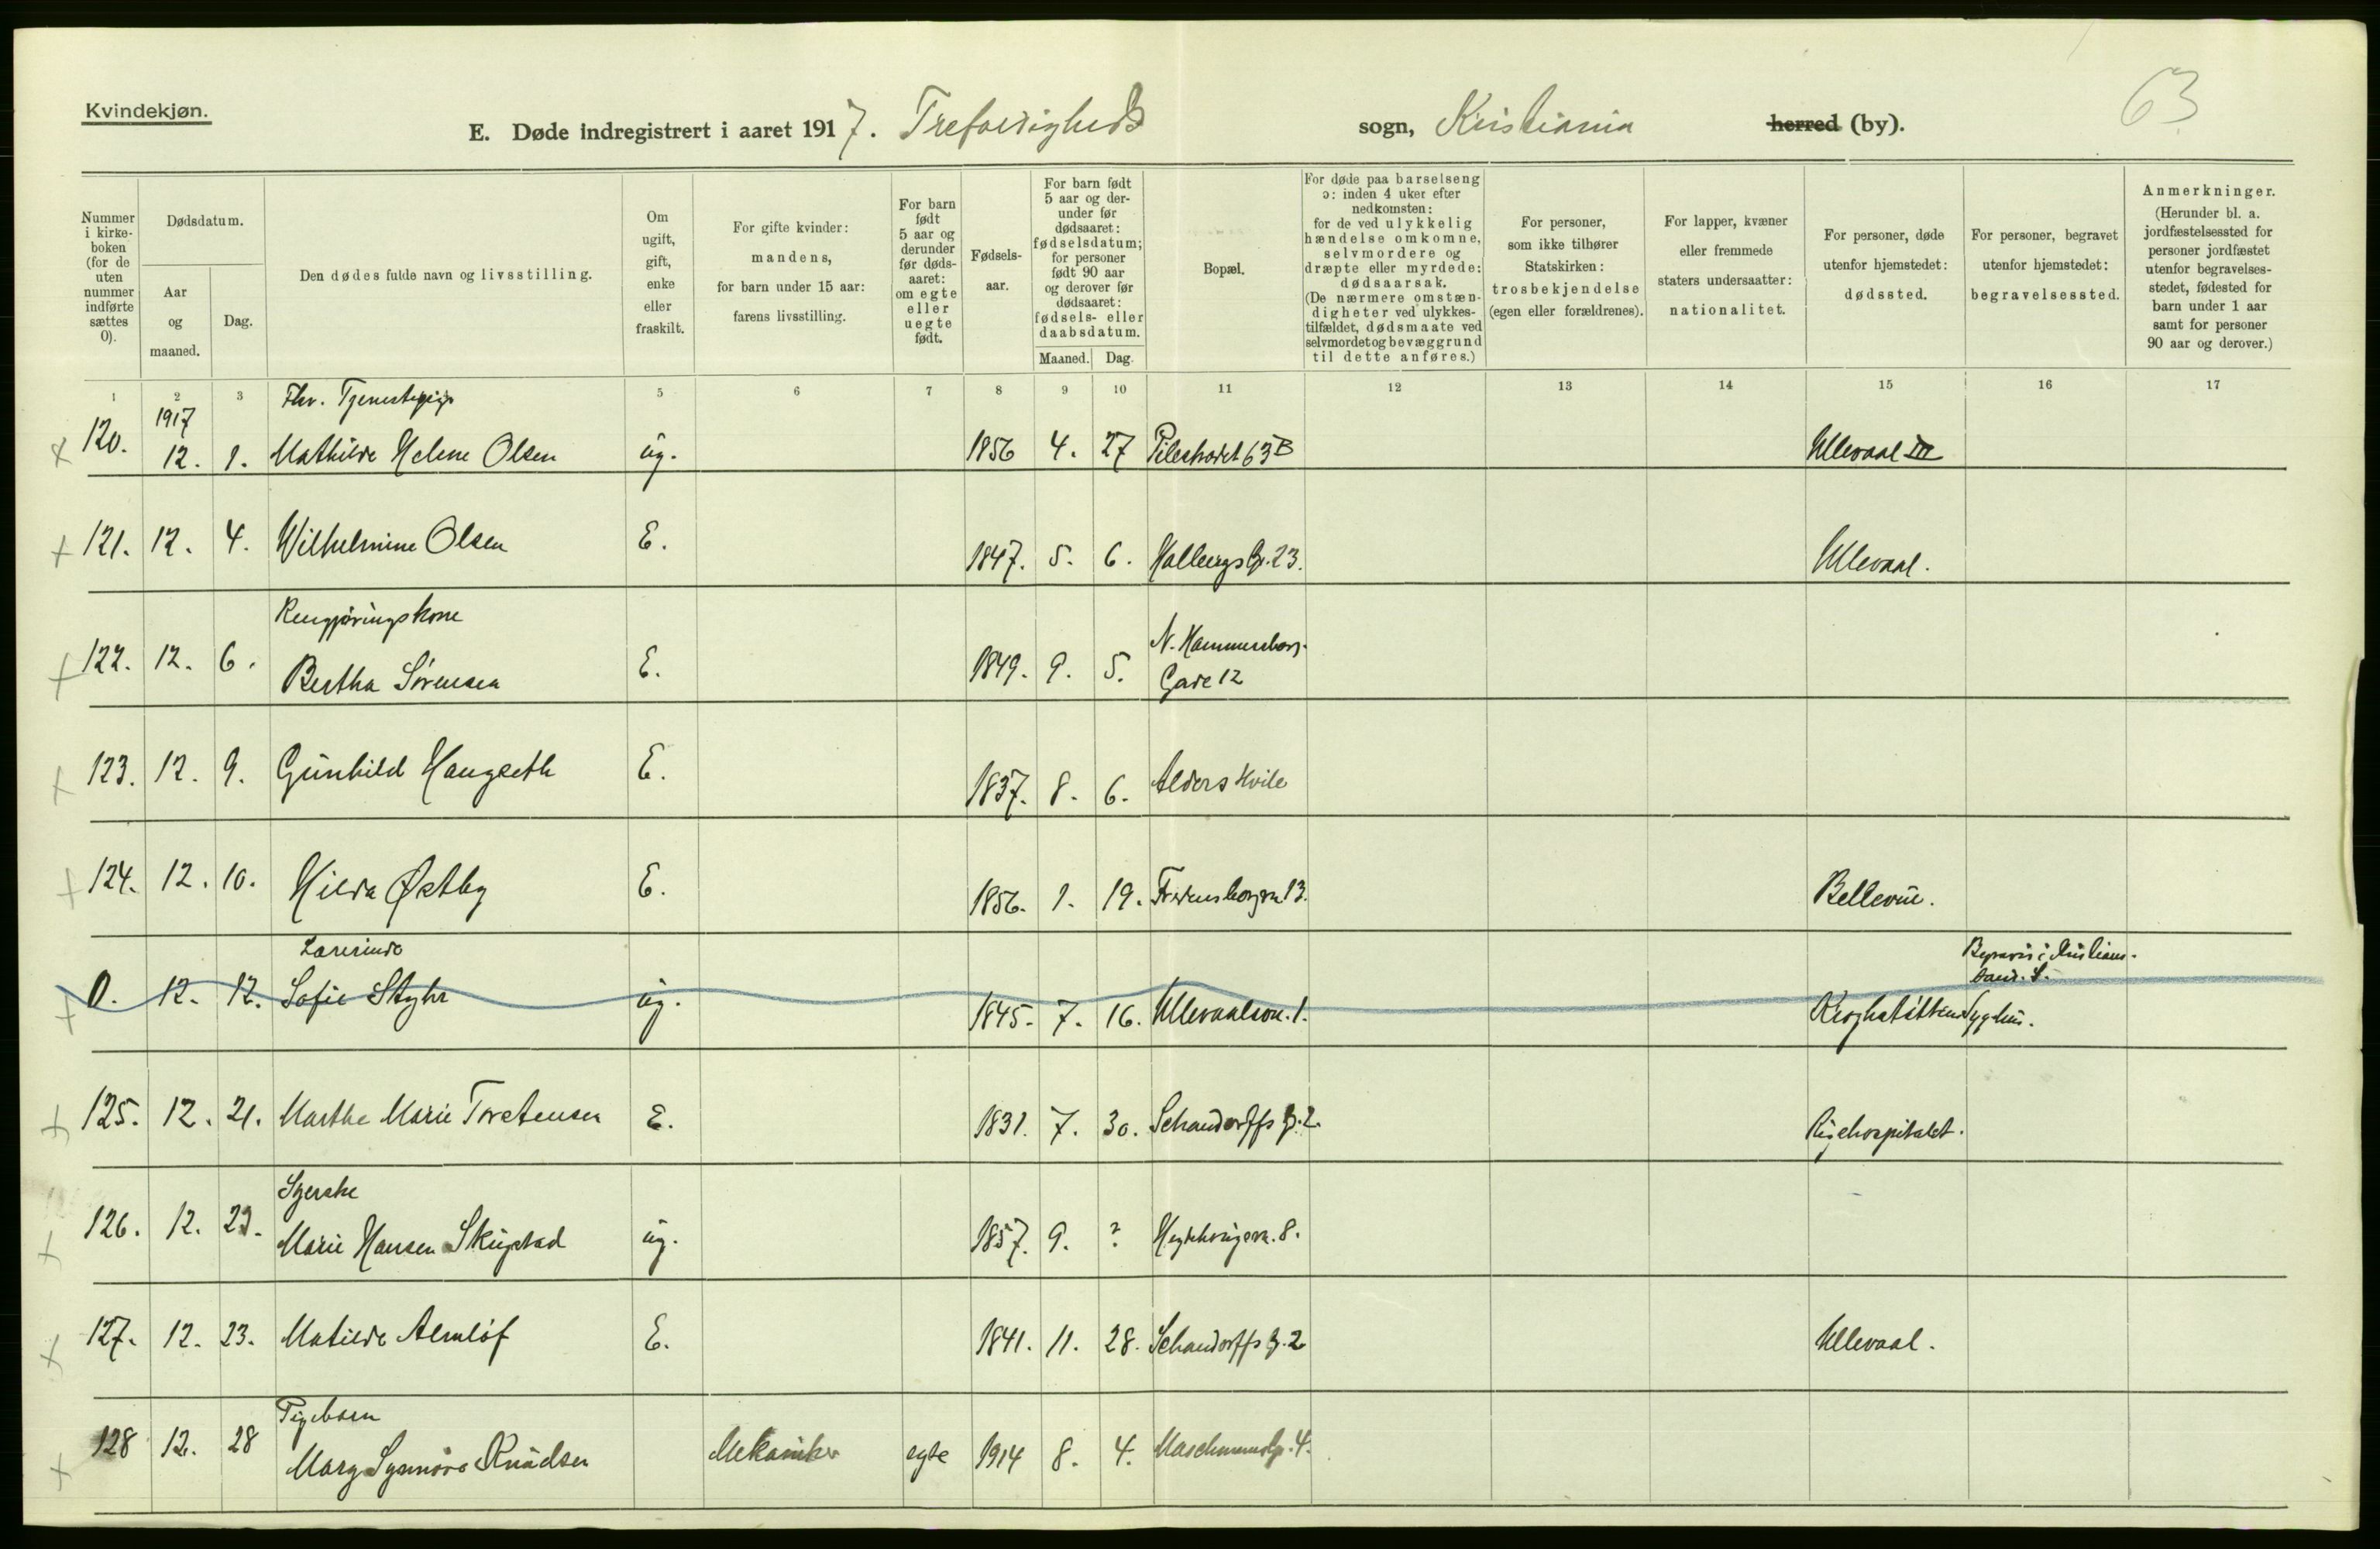 Kvindekjøn.
E. Døde indregistrert i aaret 1917. Trefoldigheds sogn, Kristiania herred (by).
63
Nummer i kirkeboken (for de uten nummer indførte sættes 0).
Dødsdatum.
Aar og maaned.
Dag.
Den dødes fulde navn og livsstilling.
Om ugift, gift, enke eller fraskilt.
For gifte kvinder: mandens, for barn under 15 aar: farens livsstilling.
For barn født 5 aar og derunder før dødsaaret: om egte eller uegte født.
Fødselsaar.
For barn født 5 aar og derunder før dødsaaret: fødselsdatum; for personer født 90 aar og derover før dødsaaret: fødsels- eller daabsdatum.
Maaned. Dag.
Bopæl.
For døde paa barselseng ɔ: inden 4 uker efter nedkomsten: for de ved ulykkelig hændelse omkomne, selvmordere og dræpte eller myrdede: dødsaarsak. (De nærmere omstændigheter ved ulykkestilfældet, dødsmaate ved selvmordet og bevæggrund til dette anføres.)
For personer, som ikke tilhører Statskirken: trosbekjendelse (egen eller forældrenes).
For lapper, kvæner eller fremmede staters undersaatter: nationalitet.
For personer, døde utenfor hjemstedet: dødssted.
For personer, begravet utenfor hjemstedet: begravelsessted.
Anmerkninger. (Herunder bl. a. jordfæstelsessted for personer jordfæstet utenfor begravelsesstedet, fødested for barn under 1 aar samt for personer 90 aar og derover.)
1 2 3 5 6 7 8 9 10 11 12 13 14 15 16 17
Fhv. Tjenestepige
1917
120. 12. 1. Mathilde Helene Olsen ug. 1856 4. 27 Pilestrædet 63B Ullevaal III
121. 12. 4. Wilhelmine Olsen E. 1847. 5. 6. Hallings G. 23. Ullevaal.
Rengjøringskone
N. Hammersborg.
122. 12. 6. Bertha Sørensen E. 1849. 9. 5. Gade 12
123. 12. 9. Gunhild Haugseth E. 1837. 8. 6. Alders Hvile
124. 12. 10. Hilda Østby E. 1856. 1. 19. 13. Bellevue.
Lærerinde
0. 12. 12. Sofie Styhr ug. 1845. 7. 16. Ullevaalsvn. 1. Kroghstøttens Sygehus.
125. 12. 21. Marthe Marie Torstensen E. 1831. 7. 30. Schandorffs G. 2. Rigshospitalet.
Syerske
126. 12. 22. Marie Hansen Skugstad ug. 1857. 9. ? Hegdehaugsvn. 8.
127. 12. 23. Matilde Almløf E. 1841. 11. 28. Schandorffs G. 2 Ullevaal.
Pigebarn
128 12. 28 Mary Synnøve Knudsen Mekaniker egte 1914 8. 4. 4.